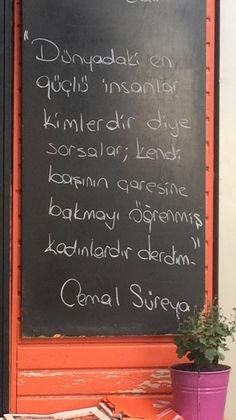 "Dünyadaki en
güçlü insanlar
kimlerdir diye
sorsalar; kendi
başının çaresine
bakmayı öğrenmiş
kadınlardır derdim."
Cemal Süreya